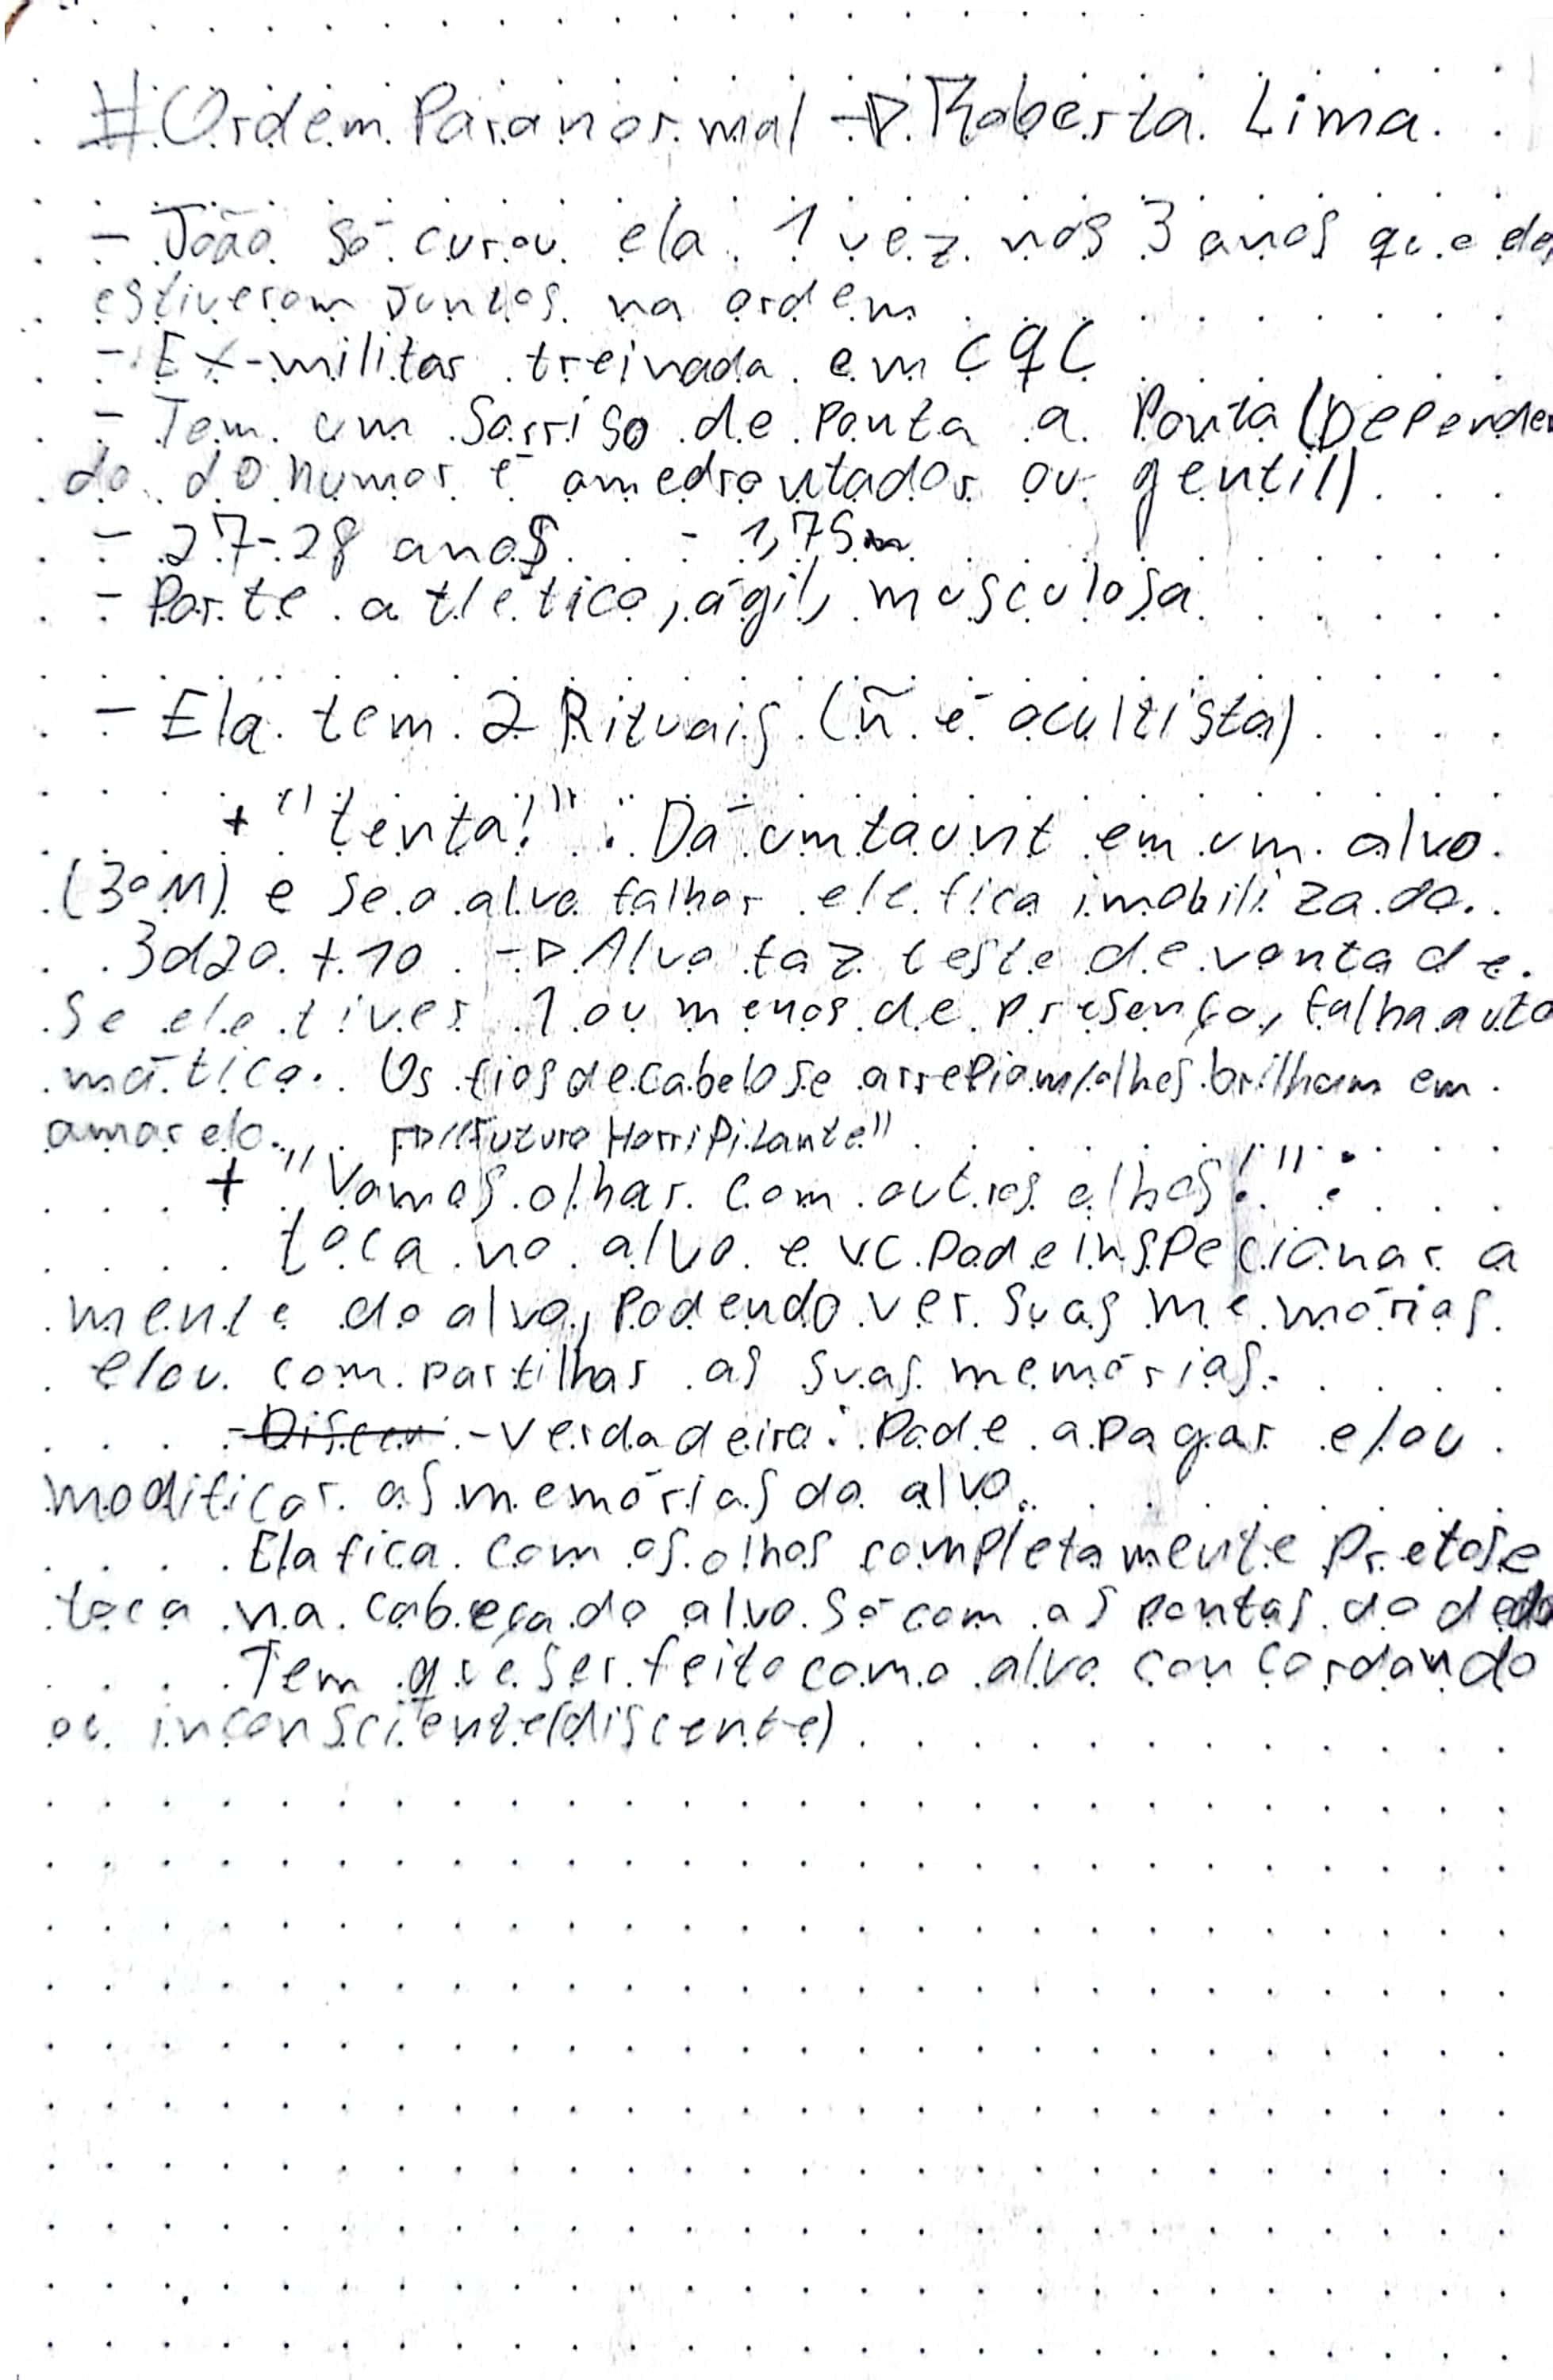 #Ordem Paranormal -> Roberta Lima
- João só curou ela 1 vez nos 3 anos que eles
estiveram juntos na ordem
- Ex-militar treinada em CQC
- Tem um Sorriso de Ponta a Ponta (Dependen
do do humor é amedrontador ou gentil)
- 27-28 anos - 1,75m
- Porte atlético, ágil, musculosa
- Ela tem 2 Rituais (ñ é ocultista)
+ "tenta!": Dá um taunt em um alvo
(30M) e se o alvo falhar ele fica imobilizado.
3d20 + 10 -> Alvo faz teste de vontade.
Se ele tiver 1 ou menos de presença, falha auto
mática. Os fios de cabelo se arrepiam/olhos brilham em
amarelo. -> "Futuro HorriPilante"
+ "Vamos olhar com outros olhos!":
toca no alvo e vc pode inspecionar a
mente do alvo, podendo ver suas memórias
e/ou compartilhar as suas memórias.
- Discen - Verdadeira: Pode apagar e/ou
modificar as memórias do alvo.
Ela fica com os olhos completamente Pretos e
toca na cabeça do alvo só com as pontas do dedo
Tem que ser feito com o alvo concordando
ou inconsciente (discente)